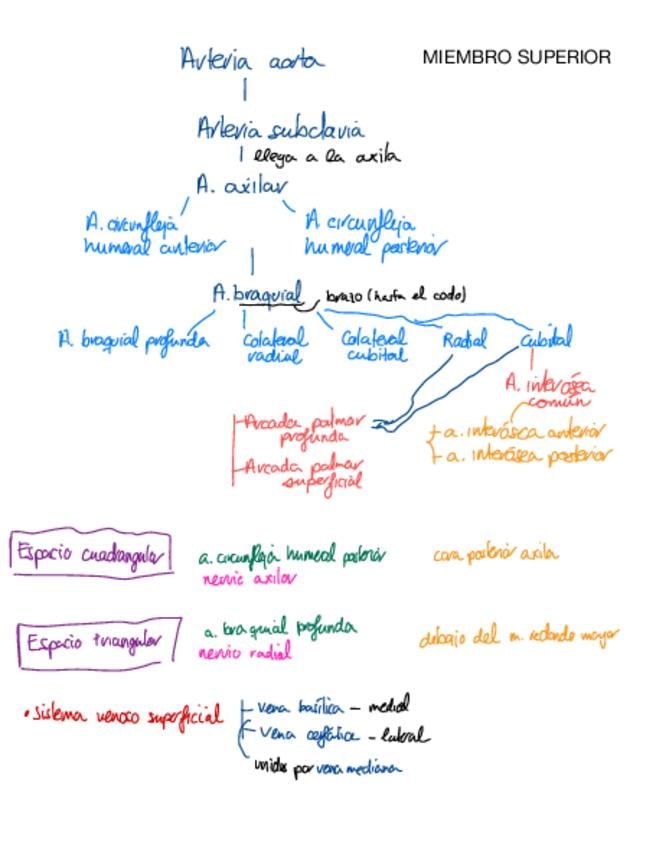 MIEMBRO SUPERIOR
Arteria aorta
Arteria subclavia
llega a la axila
A. axilar
A. circunfleja
humeral anterior
A. circunfleja
humeral posterior
A. braquial, brazo (hasta el codo)
A. braquial profunda
Colateral
radial
Colateral
cubital
Radial
Cubital
A. interósea
común
a. interósea anterior
a. interósea posterior
Arcada palmar
profunda
Arcada palmar
superficial
Espacio cuadrangular
a. circunfleja humeral posterior
nervio axilar
cara posterior axila
Espacio triangular
a. braquial profunda
nervio radial
debajo del m. redondo mayor
• sistema venoso superficial
vena basílica - medial
vena cefálica - lateral
unidas por vena mediana